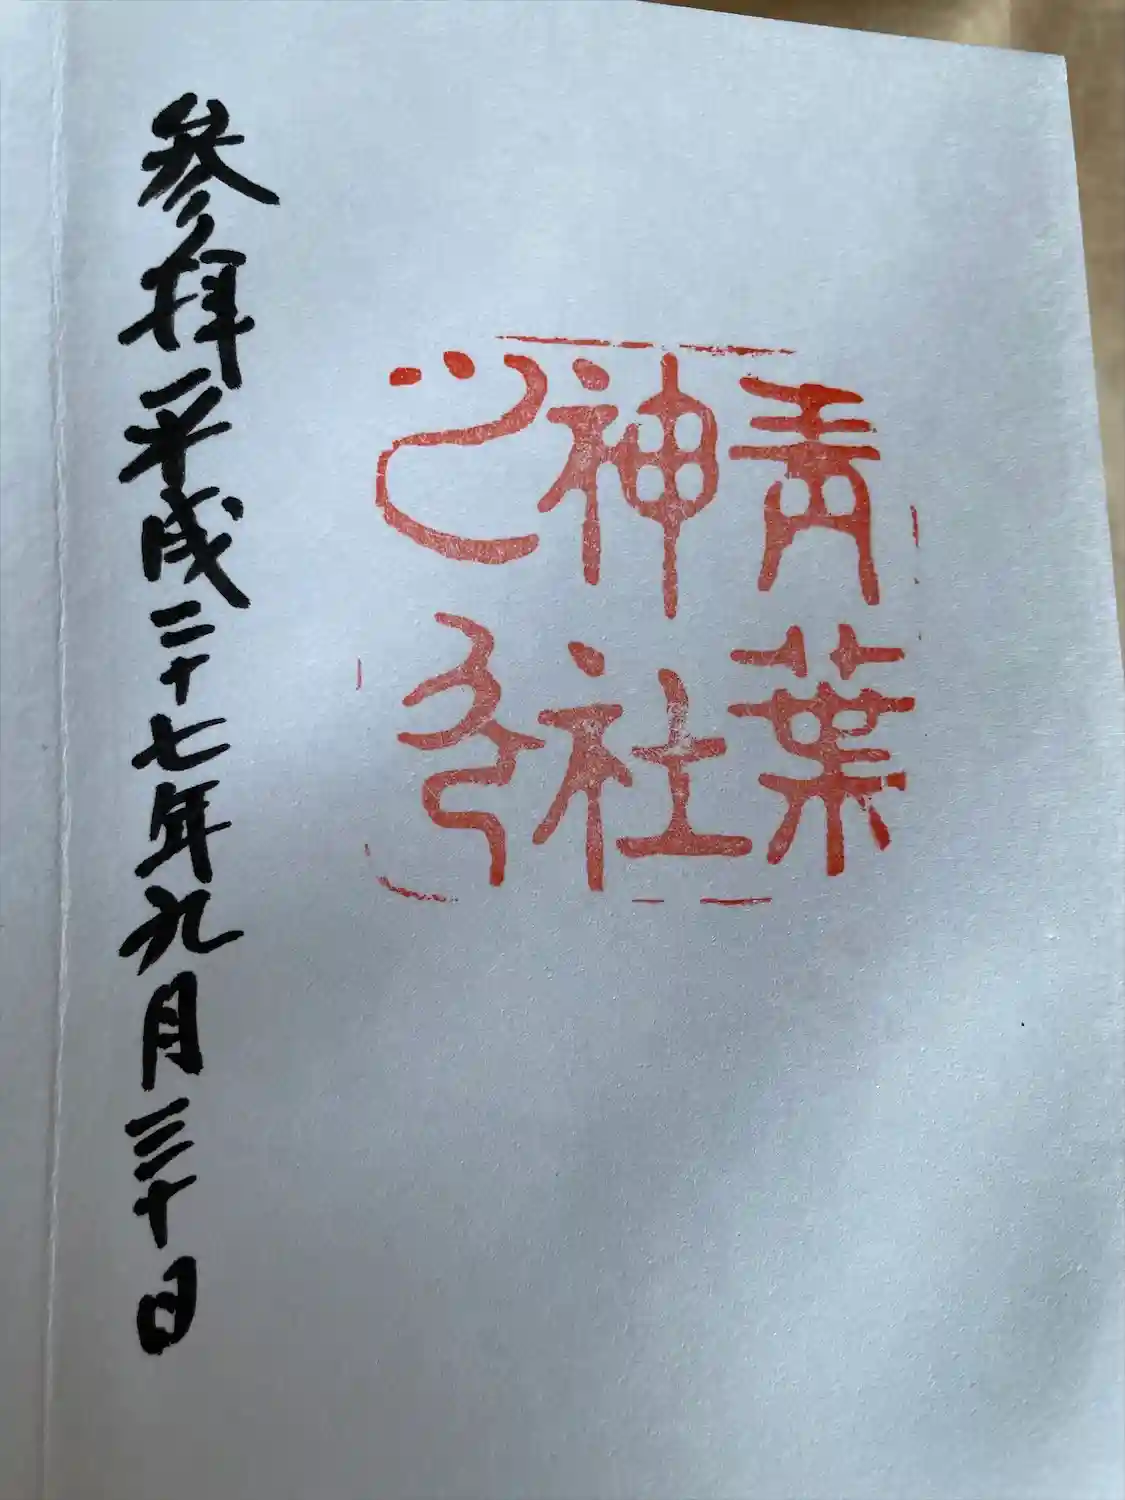 青葉
神社
之印
参拝平成二十七年九月三十日